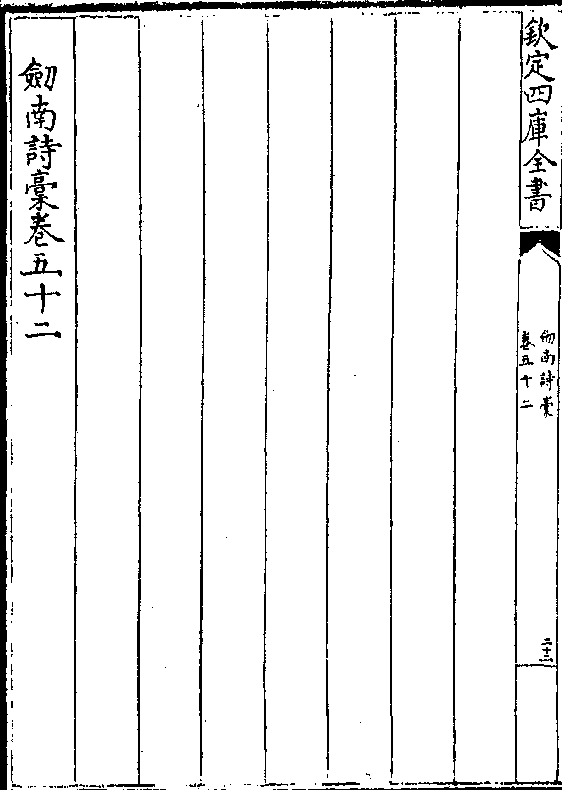 欽定四庫全書
劒南詩稾
卷五十二
二十三
劒南詩稾卷五十二